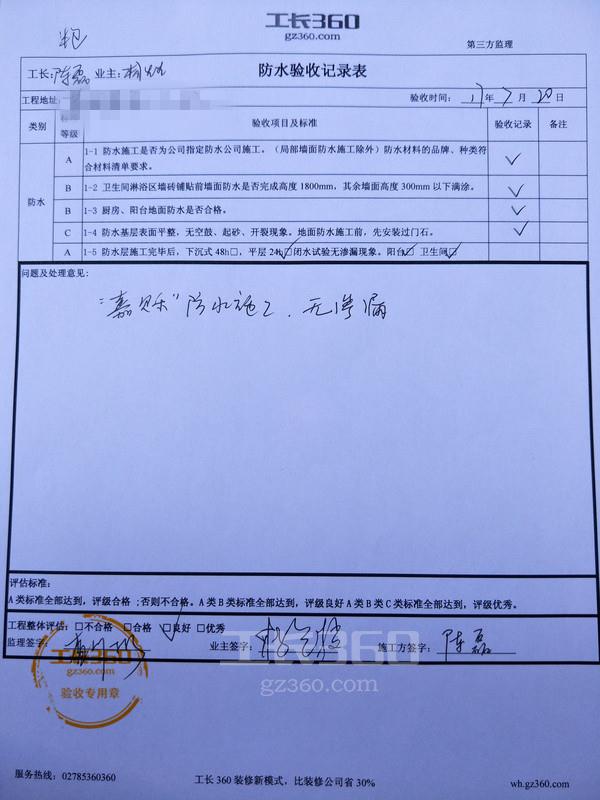 工长360
gz360.com
半包
第三方监理
工长:陈磊 业主:
防水验收记录表
工程地址: 验收时间: 17年7月20日
类别 标准等级 验收项目及标准 验收记录 备注
防水
A 1-1 防水施工是否为公司指定防水公司施工。（局部墙面防水施工除外）防水材料的品牌、种类符
合材料清单要求。 ✓
B 1-2 卫生间淋浴区墙砖铺贴前墙面防水是否完成高度 1800mm，其余墙面高度 300mm 以下满涂。 ✓
B 1-3 厨房、阳台地面防水是否合格。 ✓
C 1-4 防水基层表面平整，无空鼓、起砂、开裂现象。地面防水施工前，先安装过门石。 ✓
A 1-5 防水层施工完毕后，下沉式 48h□，平层 24h☑闭水试验无渗漏现象。阳台☑ 卫生间☑
问题及处理意见:
"嘉贝乐"防水施工．无渗漏
评估标准:
A 类标准全部达到，评级合格 ;否则不合格。A 类 B 类标准全部达到，评级良好 A 类 B 类 C 类标准全部达到，评级优秀。
工程整体评估: □不合格 □合格 ☑良好 □优秀
监理签字: 业主签字: 施工方签字: 陈磊
工长360
gz360.com
验收专用章
工长360
gz360.com
服务热线: 02785360360 工长 360 装修新模式，比装修公司省 30% wh.gz360.com